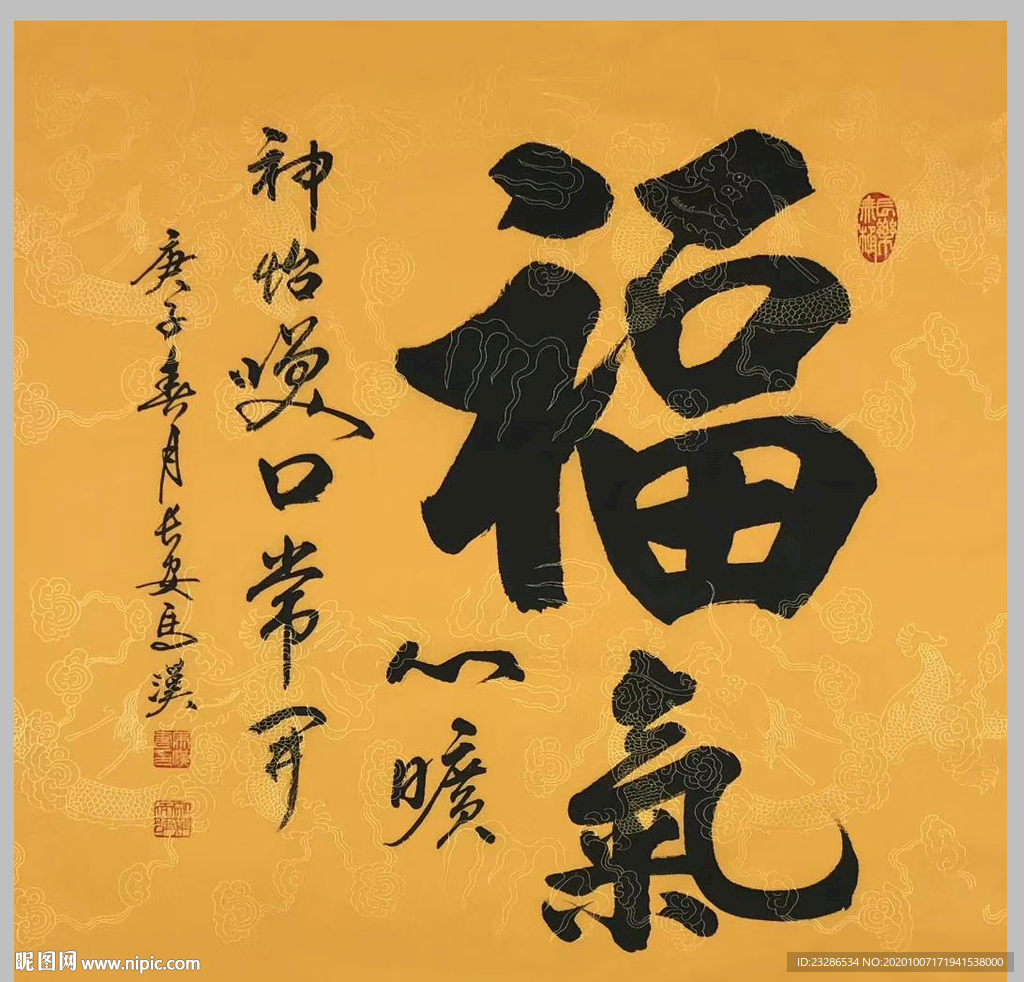 福氣
心曠
神怡口常開
庚子春月長安馬漢
昵图网 www.nipic.com
ID:23286534 NO:20201007171941538000